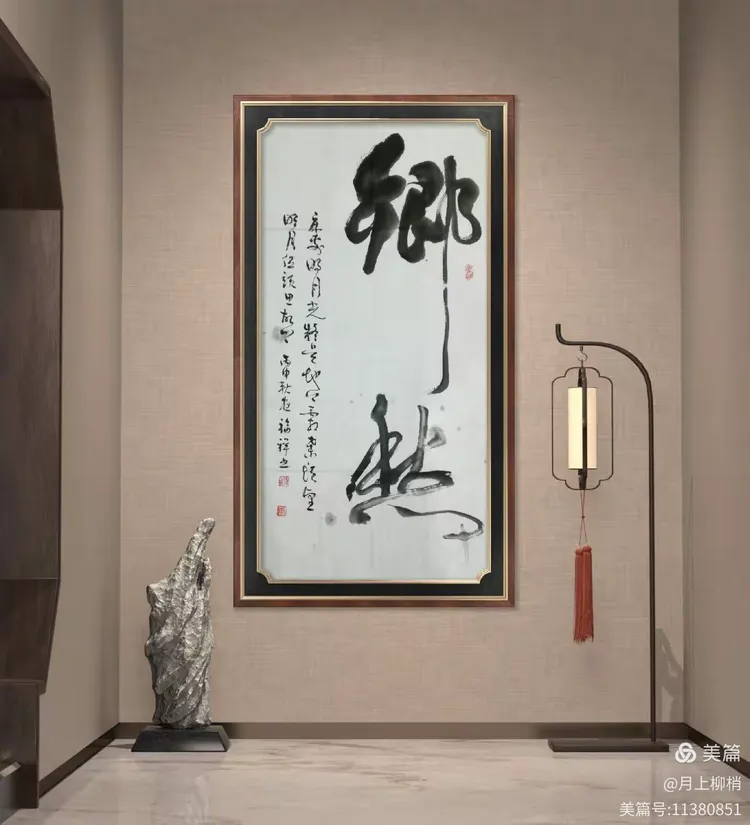 鄉愁
床前明月光疑是地上霜舉頭望
明月低頭思故鄉 丙申秋 福祥书
美篇
@月上柳梢
美篇号:11380851